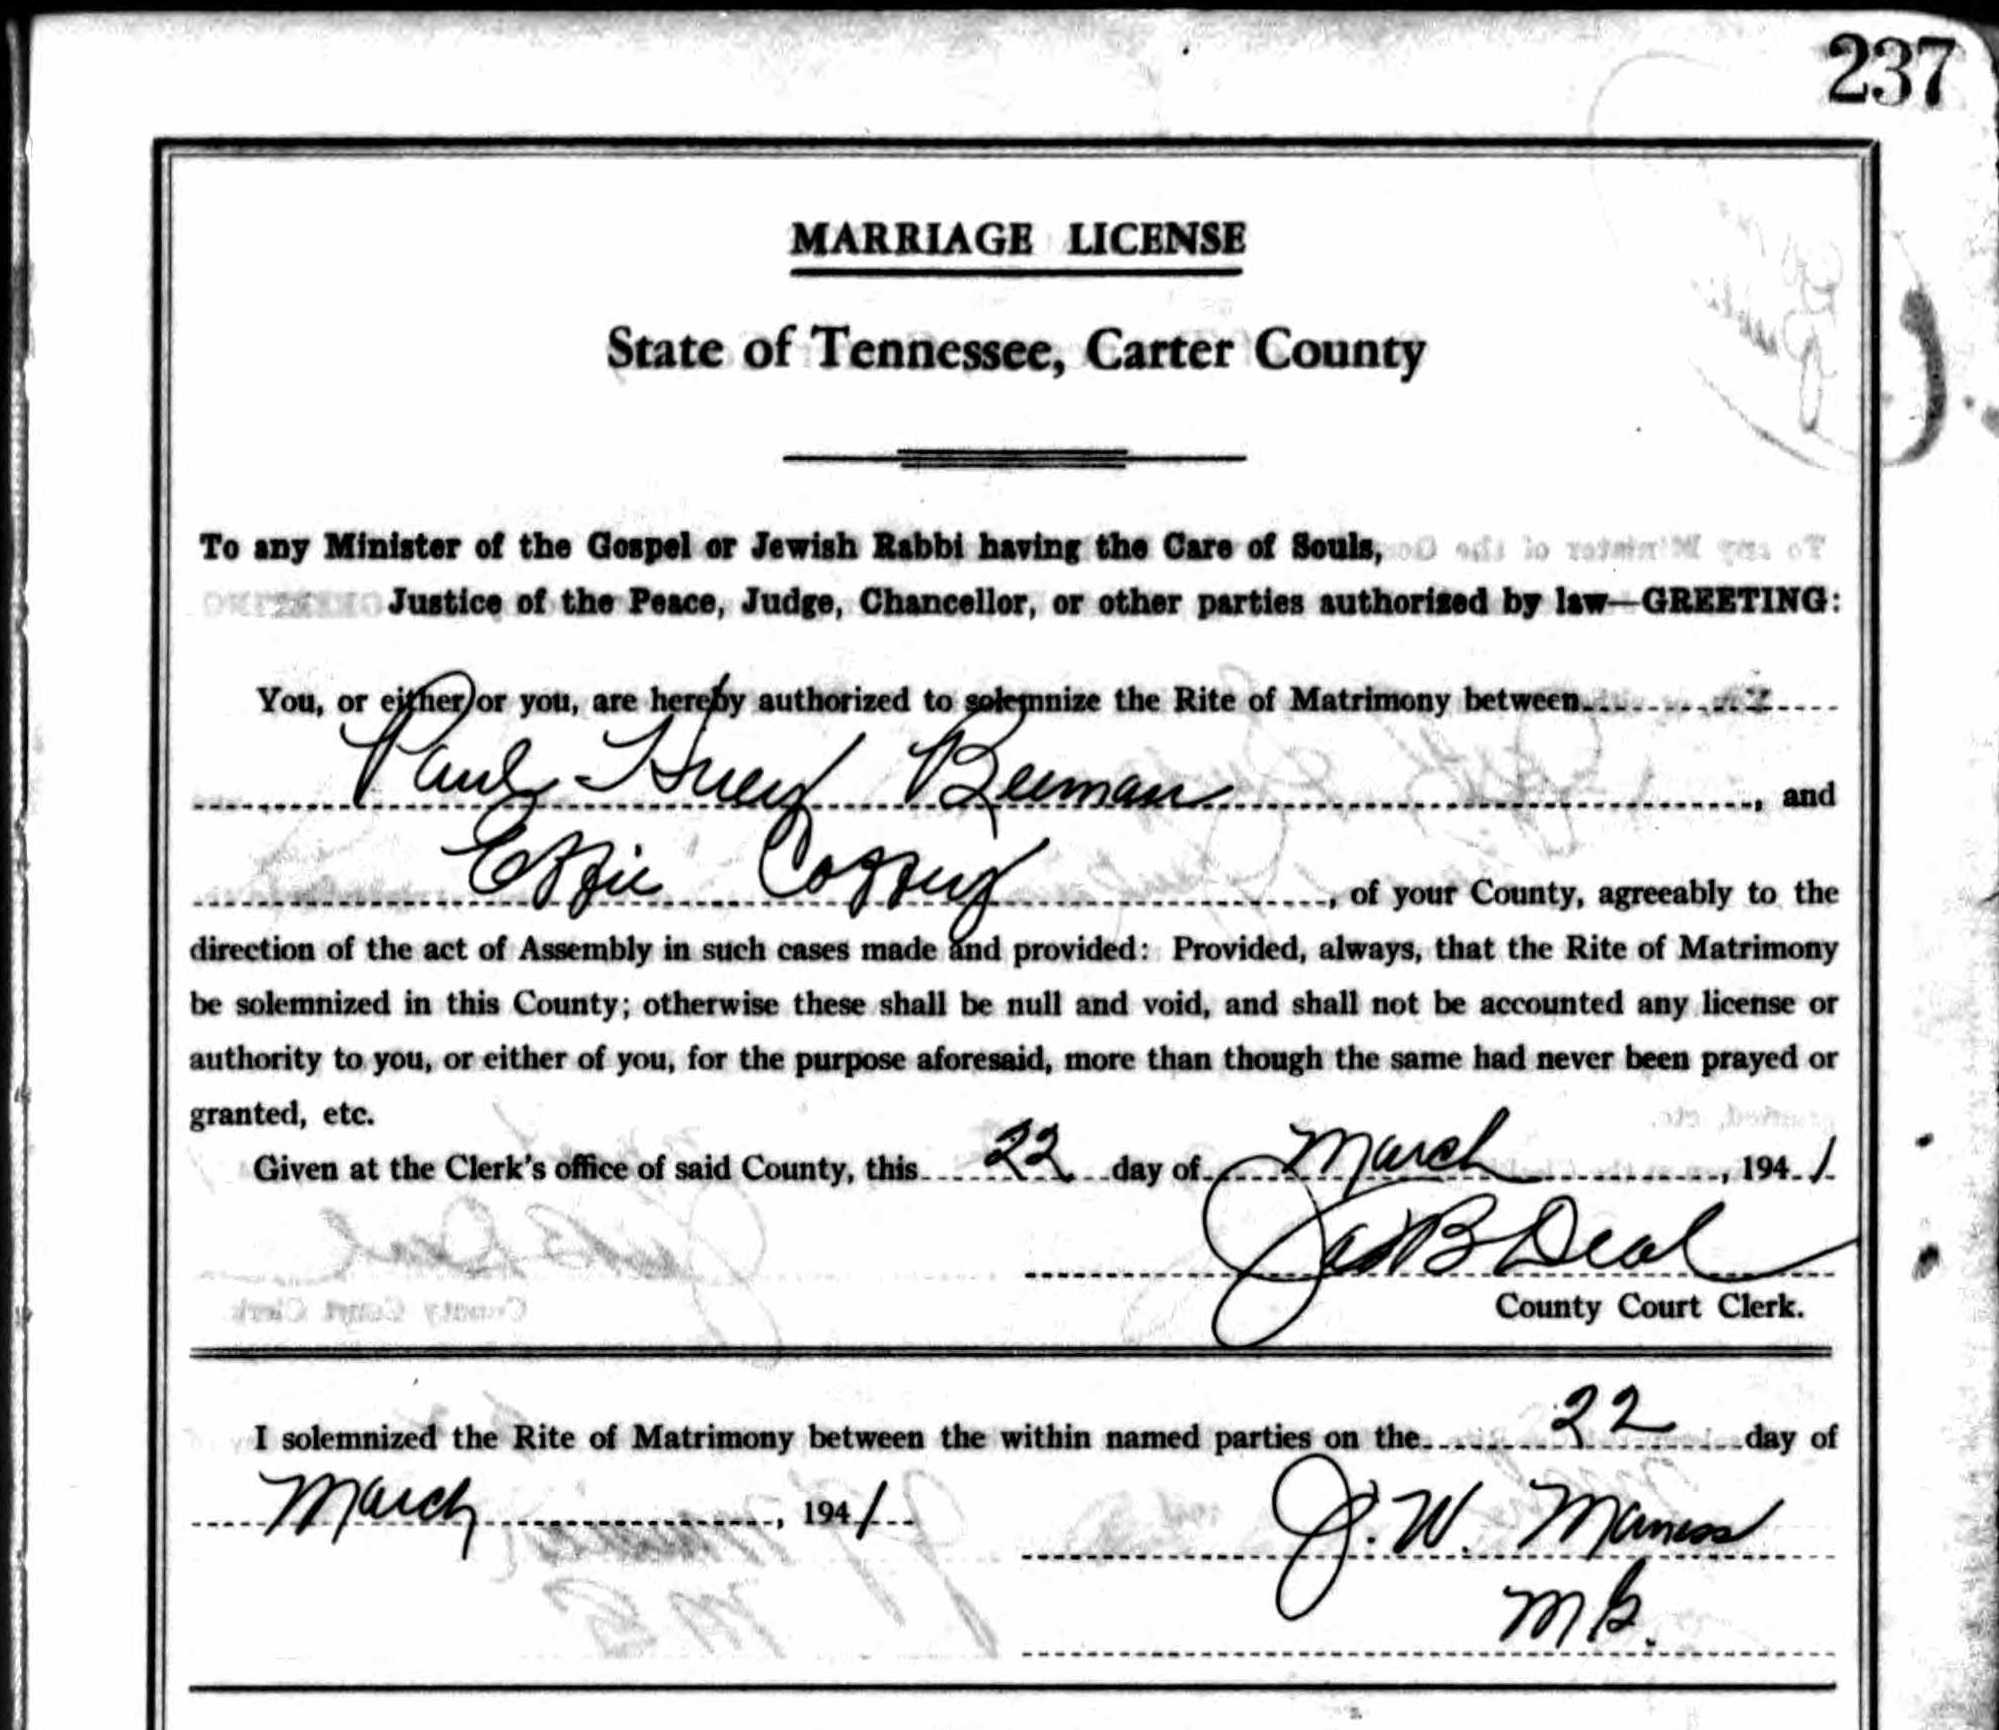 237
MARRIAGE LICENSE
State of Tennessee, Carter County
To any Minister of the Gospel or Jewish Rabbi having the Care of Souls,
Justice of the Peace, Judge, Chancellor, or other parties authorized by law—GREETING:
You, or either or you, are hereby authorized to solemnize the Rite of Matrimony between
Paul Huey Beeman, and
Effie Coffey, of your County, agreeably to the
direction of the act of Assembly in such cases made and provided: Provided, always, that the Rite of Matrimony
be solemnized in this County; otherwise these shall be null and void, and shall not be accounted any license or
authority to you, or either of you, for the purpose aforesaid, more than though the same had never been prayed or
granted, etc.
Given at the Clerk's office of said County, this 22 day of March, 1941
Jas B Deal
County Court Clerk.
I solemnized the Rite of Matrimony between the within named parties on the 22 day of
March, 1941
J. W. Maness
M G.